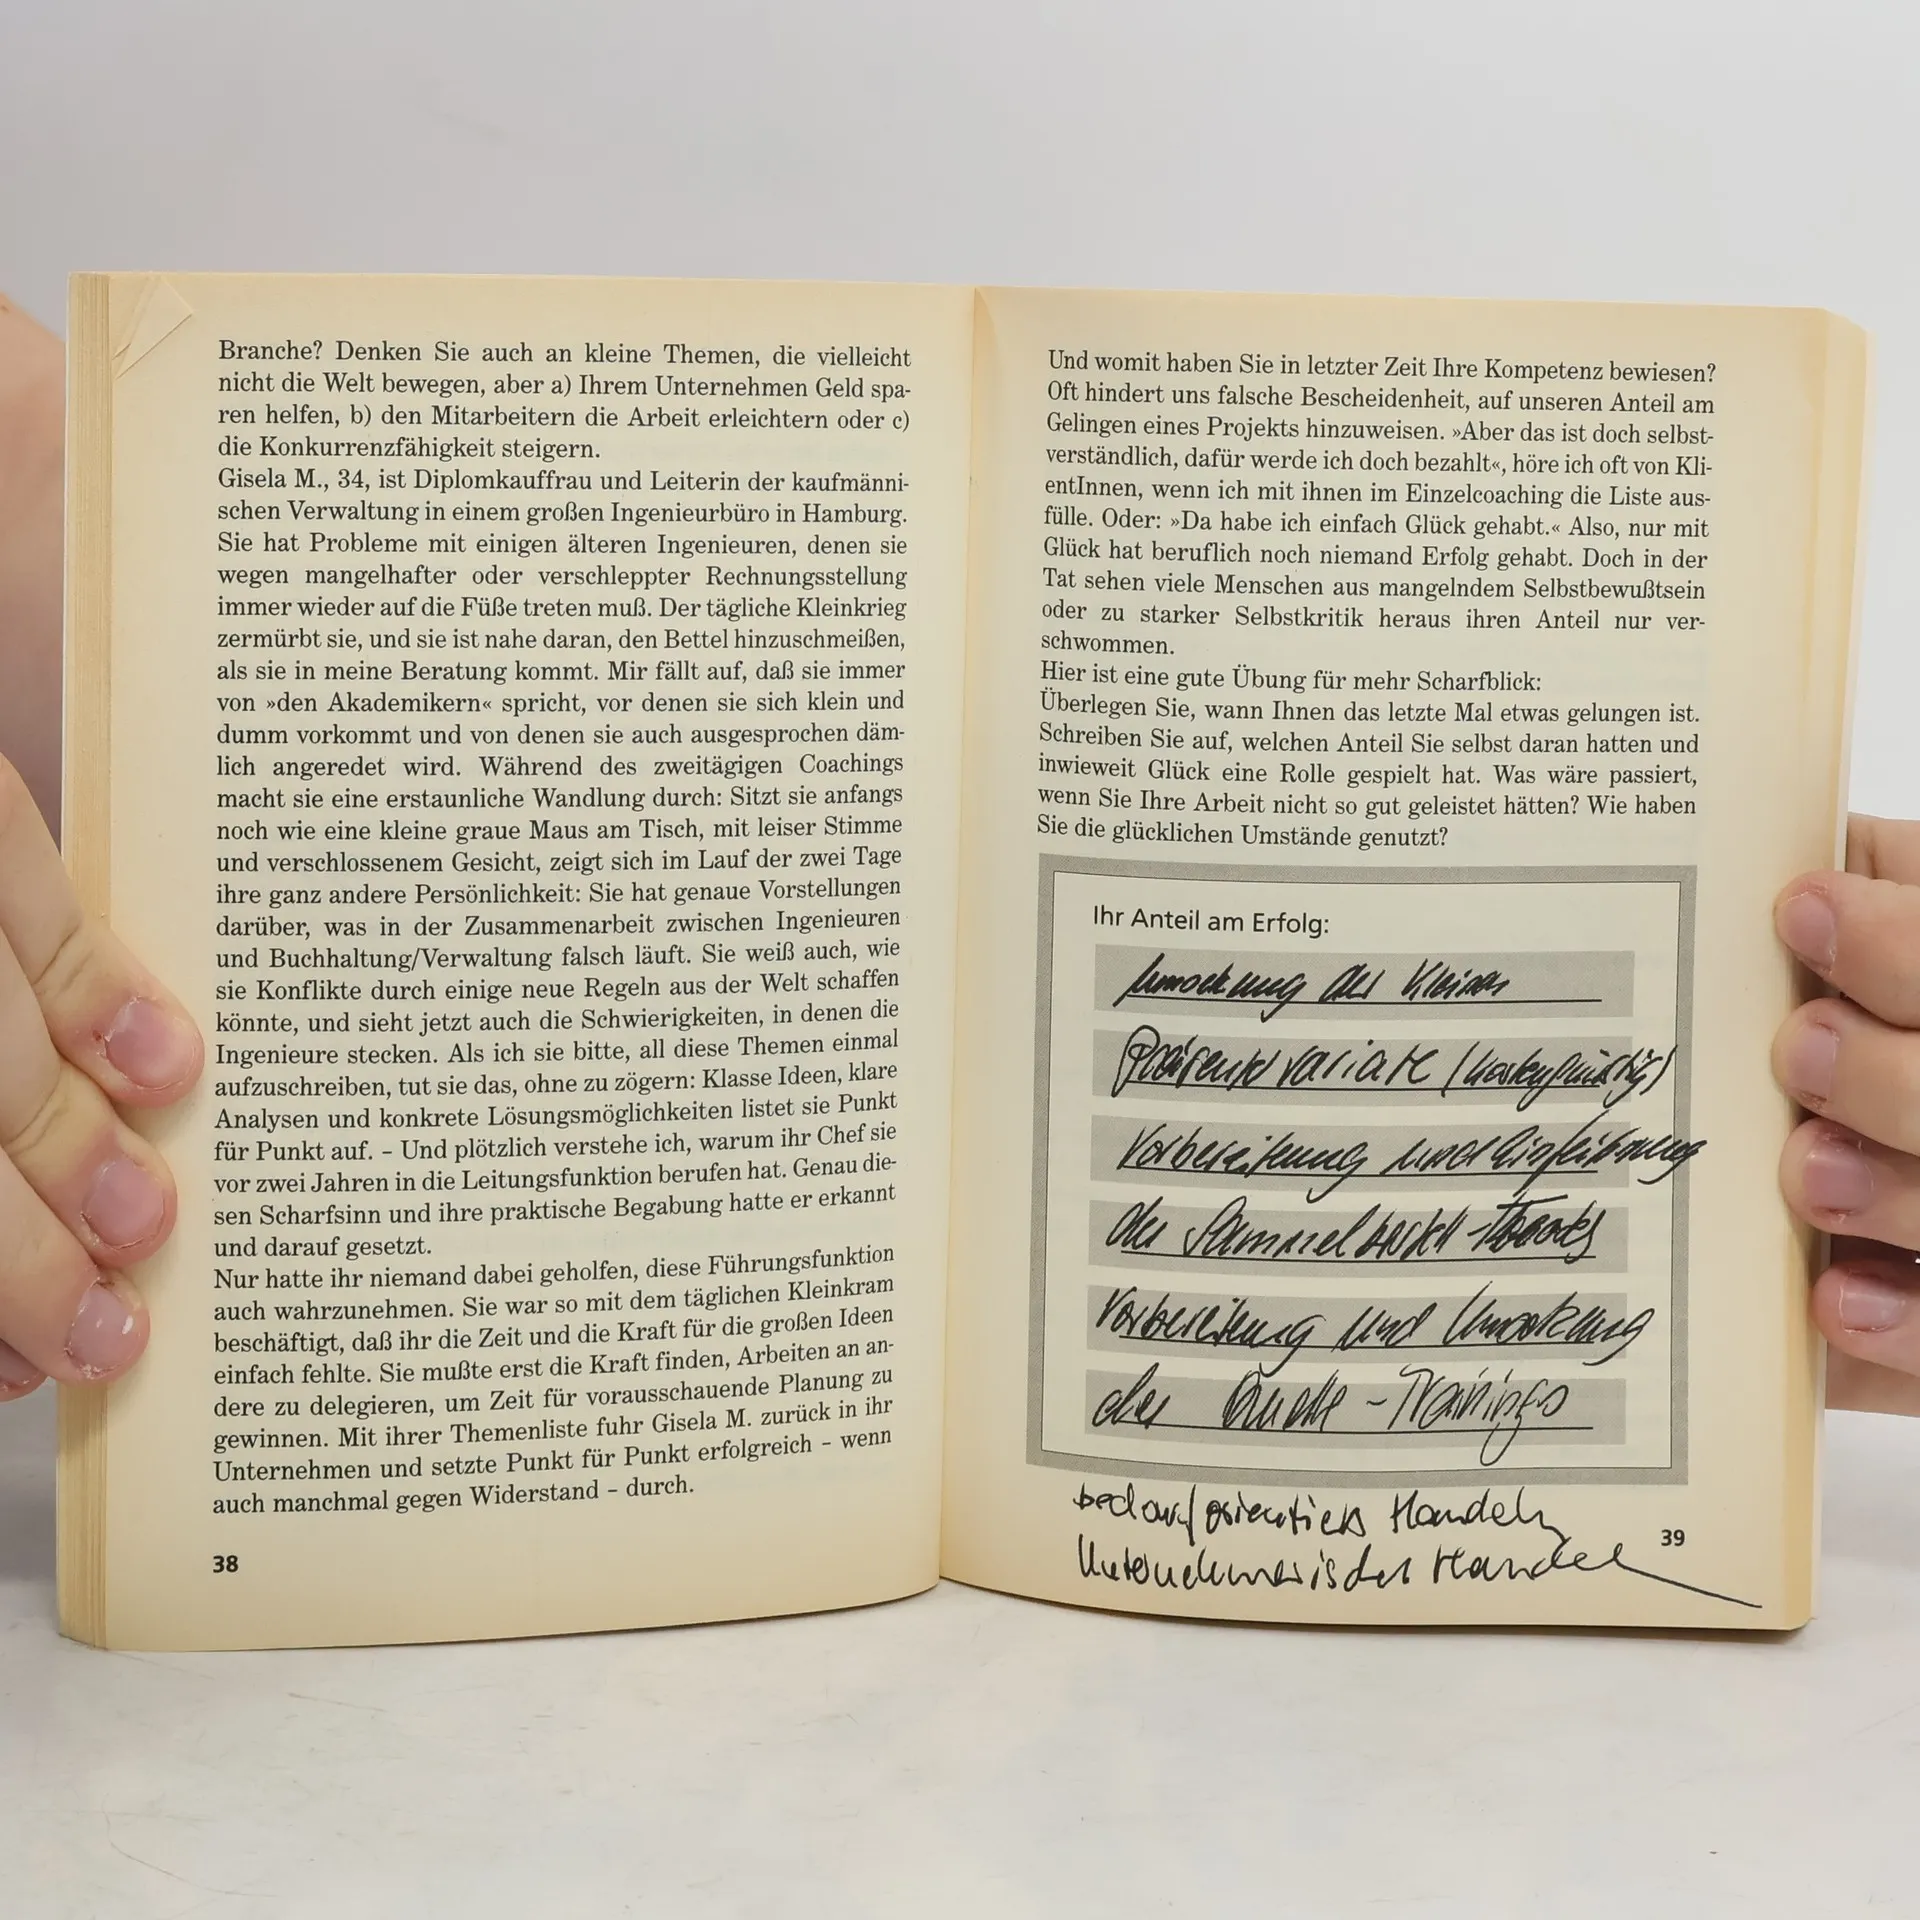 Branche? Denken Sie auch an kleine Themen, die vielleicht
nicht die Welt bewegen, aber a) Ihrem Unternehmen Geld spa-
ren helfen, b) den Mitarbeitern die Arbeit erleichtern oder c)
die Konkurrenzfähigkeit steigern.
Gisela M., 34, ist Diplomkauffrau und Leiterin der kaufmänni-
schen Verwaltung in einem großen Ingenieurbüro in Hamburg.
Sie hat Probleme mit einigen älteren Ingenieuren, denen sie
wegen mangelhafter oder verschleppter Rechnungsstellung
immer wieder auf die Füße treten muß. Der tägliche Kleinkrieg
zermürbt sie, und sie ist nahe daran, den Bettel hinzuschmeißen,
als sie in meine Beratung kommt. Mir fällt auf, daß sie immer
von »den Akademikern« spricht, vor denen sie sich klein und
dumm vorkommt und von denen sie auch ausgesprochen däm-
lich angeredet wird. Während des zweitägigen Coachings
macht sie eine erstaunliche Wandlung durch: Sitzt sie anfangs
noch wie eine kleine graue Maus am Tisch, mit leiser Stimme
und verschlossenem Gesicht, zeigt sich im Lauf der zwei Tage
ihre ganz andere Persönlichkeit: Sie hat genaue Vorstellungen
darüber, was in der Zusammenarbeit zwischen Ingenieuren
und Buchhaltung/Verwaltung falsch läuft. Sie weiß auch, wie
sie Konflikte durch einige neue Regeln aus der Welt schaffen
könnte, und sieht jetzt auch die Schwierigkeiten, in denen die
Ingenieure stecken. Als ich sie bitte, all diese Themen einmal
aufzuschreiben, tut sie das, ohne zu zögern: Klasse Ideen, klare
Analysen und konkrete Lösungsmöglichkeiten listet sie Punkt
für Punkt auf. – Und plötzlich verstehe ich, warum ihr Chef sie
vor zwei Jahren in die Leitungsfunktion berufen hat. Genau die-
sen Scharfsinn und ihre praktische Begabung hatte er erkannt
und darauf gesetzt.
Nur hatte ihr niemand dabei geholfen, diese Führungsfunktion
auch wahrzunehmen. Sie war so mit dem täglichen Kleinkram
beschäftigt, daß ihr die Zeit und die Kraft für die großen Ideen
einfach fehlte. Sie mußte erst die Kraft finden, Arbeiten an an-
dere zu delegieren, um Zeit für vorausschauende Planung zu
gewinnen. Mit ihrer Themenliste fuhr Gisela M. zurück in ihr
Unternehmen und setzte Punkt für Punkt erfolgreich – wenn
auch manchmal gegen Widerstand – durch.
38
Und womit haben Sie in letzter Zeit Ihre Kompetenz bewiesen?
Oft hindert uns falsche Bescheidenheit, auf unseren Anteil am
Gelingen eines Projekts hinzuweisen. »Aber das ist doch selbst-
verständlich, dafür werde ich doch bezahlt«, höre ich oft von Kli-
entInnen, wenn ich mit ihnen im Einzelcoaching die Liste aus-
fülle. Oder: »Da habe ich einfach Glück gehabt.« Also, nur mit
Glück hat beruflich noch niemand Erfolg gehabt. Doch in der
Tat sehen viele Menschen aus mangelndem Selbstbewußtsein
oder zu starker Selbstkritik heraus ihren Anteil nur ver-
schwommen.
Hier ist eine gute Übung für mehr Scharfblick:
Überlegen Sie, wann Ihnen das letzte Mal etwas gelungen ist.
Schreiben Sie auf, welchen Anteil Sie selbst daran hatten und
inwieweit Glück eine Rolle gespielt hat. Was wäre passiert,
wenn Sie Ihre Arbeit nicht so gut geleistet hätten? Wie haben
Sie die glücklichen Umstände genutzt?
Ihr Anteil am Erfolg:
Umsetzung der
(kostengünstig)
Vorbereitung und Einführung
der
Vorbereitung und Umsetzung
der - Trainings
bedarforientiertes Handeln
Unternehmerisches Handeln
39